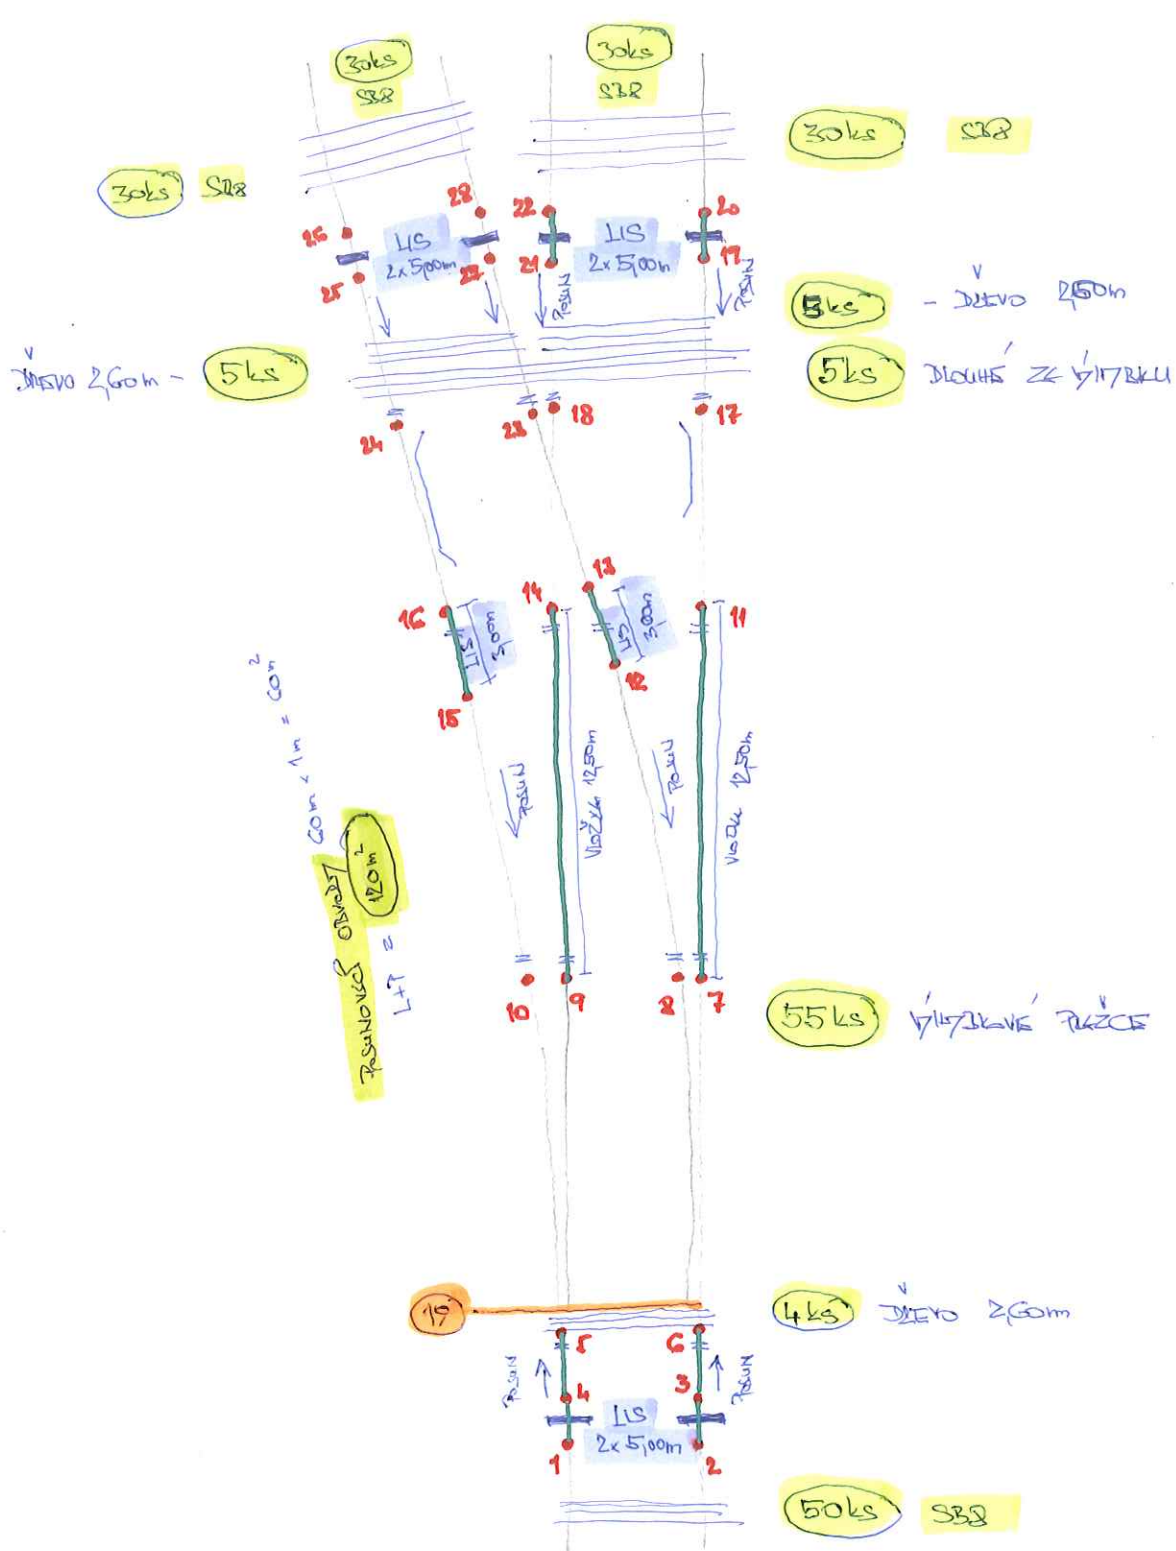 30ks
SB8
30ks
SB8
30ks SB8
30ks SB8
28
22
20
26
LIS
2x5,00m
LIS
2x5,00m
25
27
21
19
POSUN
POSUN
5ks - DŘEVO 2,60m
DŘEVO 2,60m - 5ks
5ks DLOUHÉ ZE VÝHYBKU
24
23
18
17
16
14
13
11
LIS
3,00m
LIS
3,00m
15
12
60m x 1m = 60m²
POSUN
VLOŽKA 12,50m
POSUN
VLOŽKA 12,50m
POSUNOVSKÝ OBVODY
120m²
L+P =
10
9
8
7
55ks VÝHYBKOVÉ PRAŽCE
19
4ks DŘEVO 2,60m
5
6
POSUN
4
3
POSUN
LIS
2x5,00m
1
2
50ks SB8